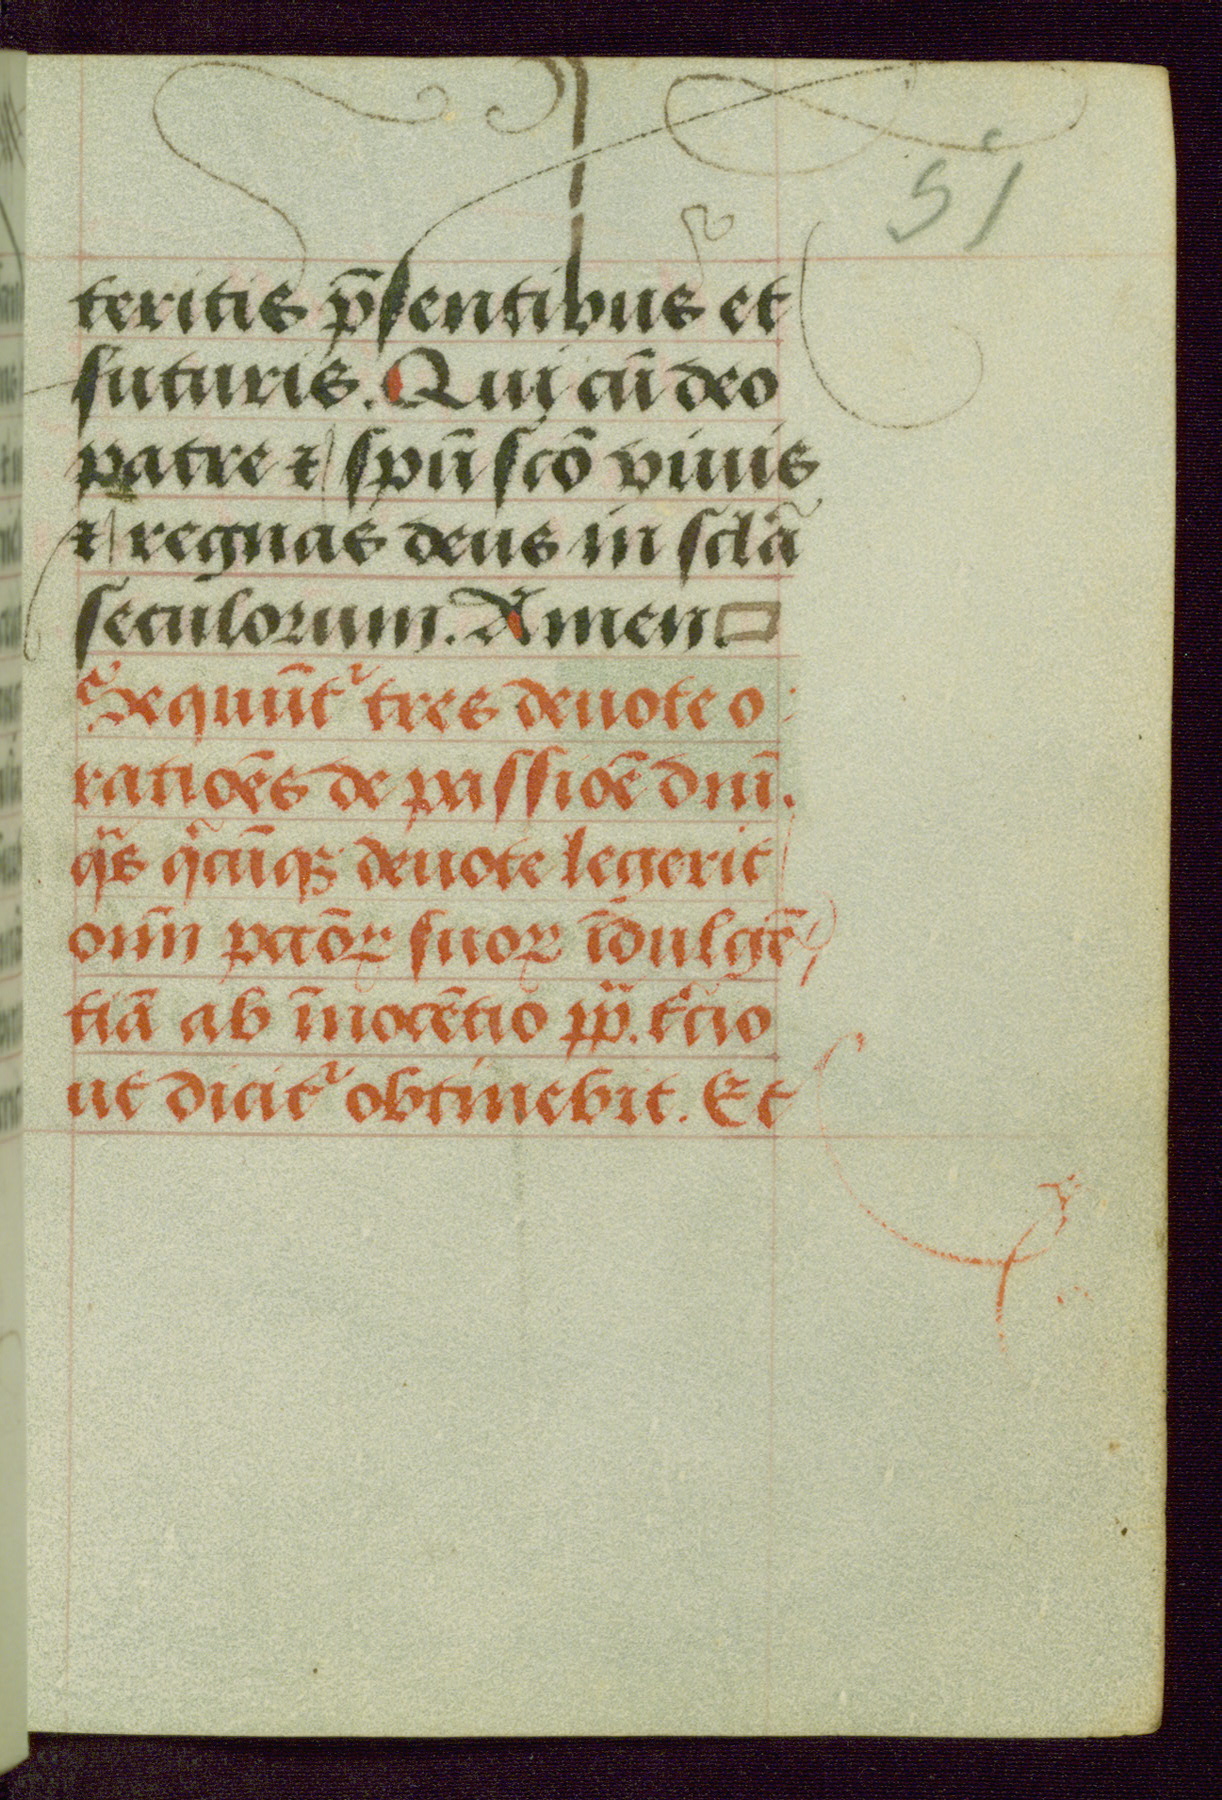 51
teritis p̄sentibus et
futuris. Qui cū deo
patre ⁊ spū scō viuis
⁊ regnas deus in scl̄a
seculorum. Amen
Sequūt᷑ tres deuote o
ratiōes de passiōe dnī.
q̄s q̄cūqꝫ deuote legerit
om̄n pctōꝝ suoꝝ īdulgē
tiā ab īnocētio pp̄. t̄cio
ut dicit᷑ obtinebit. Et